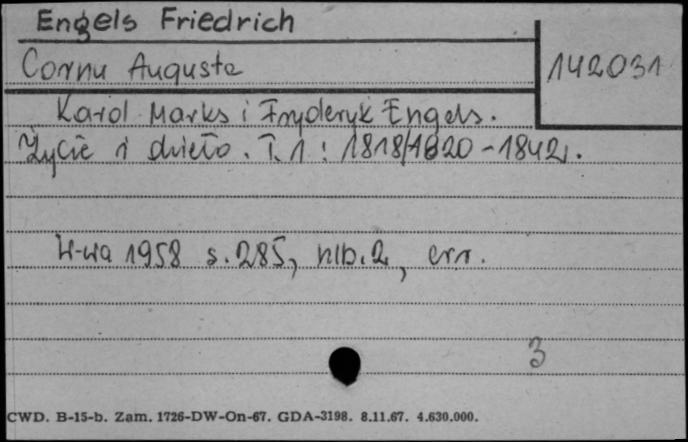 Engels Friedrich
Cornu Auguste
142031
Karol Marks i Fryderyk Engels.
Życie i dzieło. T. 1 : 1818/1820 - 1842.
W-wa 1958 s. 285, nlb. 2, err.
3
CWD. B-15-b. Zam. 1726-DW-On-67. GDA-3198. 8.11.67. 4.630.000.